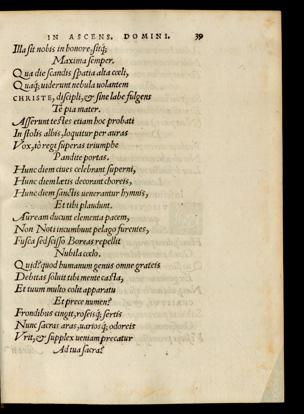 IN ASCENS. DOMINI. 39
Illa sit nobis in honore, sitq́;
Maxima semper.
Qua die scandis spatia alta cœli,
Quaq́; viderunt nebula uolantem
CHRISTE, discipli, & sine labe fulgens
Te pia mater.
Asserunt testes etiam hoc probati
In stolis albis, loquitur per auras
Vox, tò regt superas triumphe
Pandite portas.
Hunc diem ciues celebrant superni,
Hunc diem lætis decorant choreis,
Hunc diem sanctis uenerantur hymnis,
Et tibi plaudunt.
Auream ducunt elementa pacem,
Non Noti incumbunt pelago furentes,
Fusca sed scisso Boreas repellit
Nubila cœlo.
Quid? quod humanum genus omne grateis
Debitas soluit tibi mente casta,
Et tuum multo colit apparatu
Et prece numen?
Frondibus cingit, roseisq́; sertis
Nunc sacras aras, uariosq́; odoreis
Vrit, & supplex ueniam precatur
Ad tua sacra?